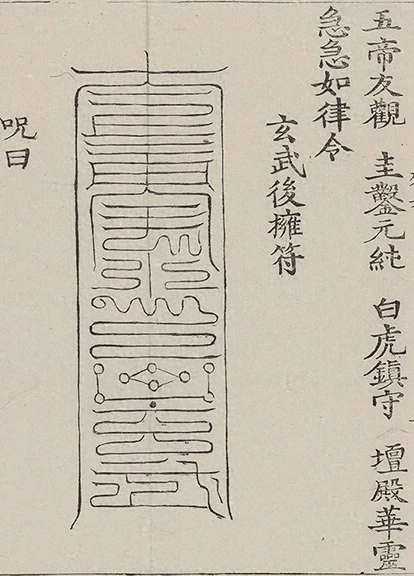 五帝友觀 圭鑿元純 白虎鎮守 壇殿華靈
急急如律令
玄武後擁符
呪曰